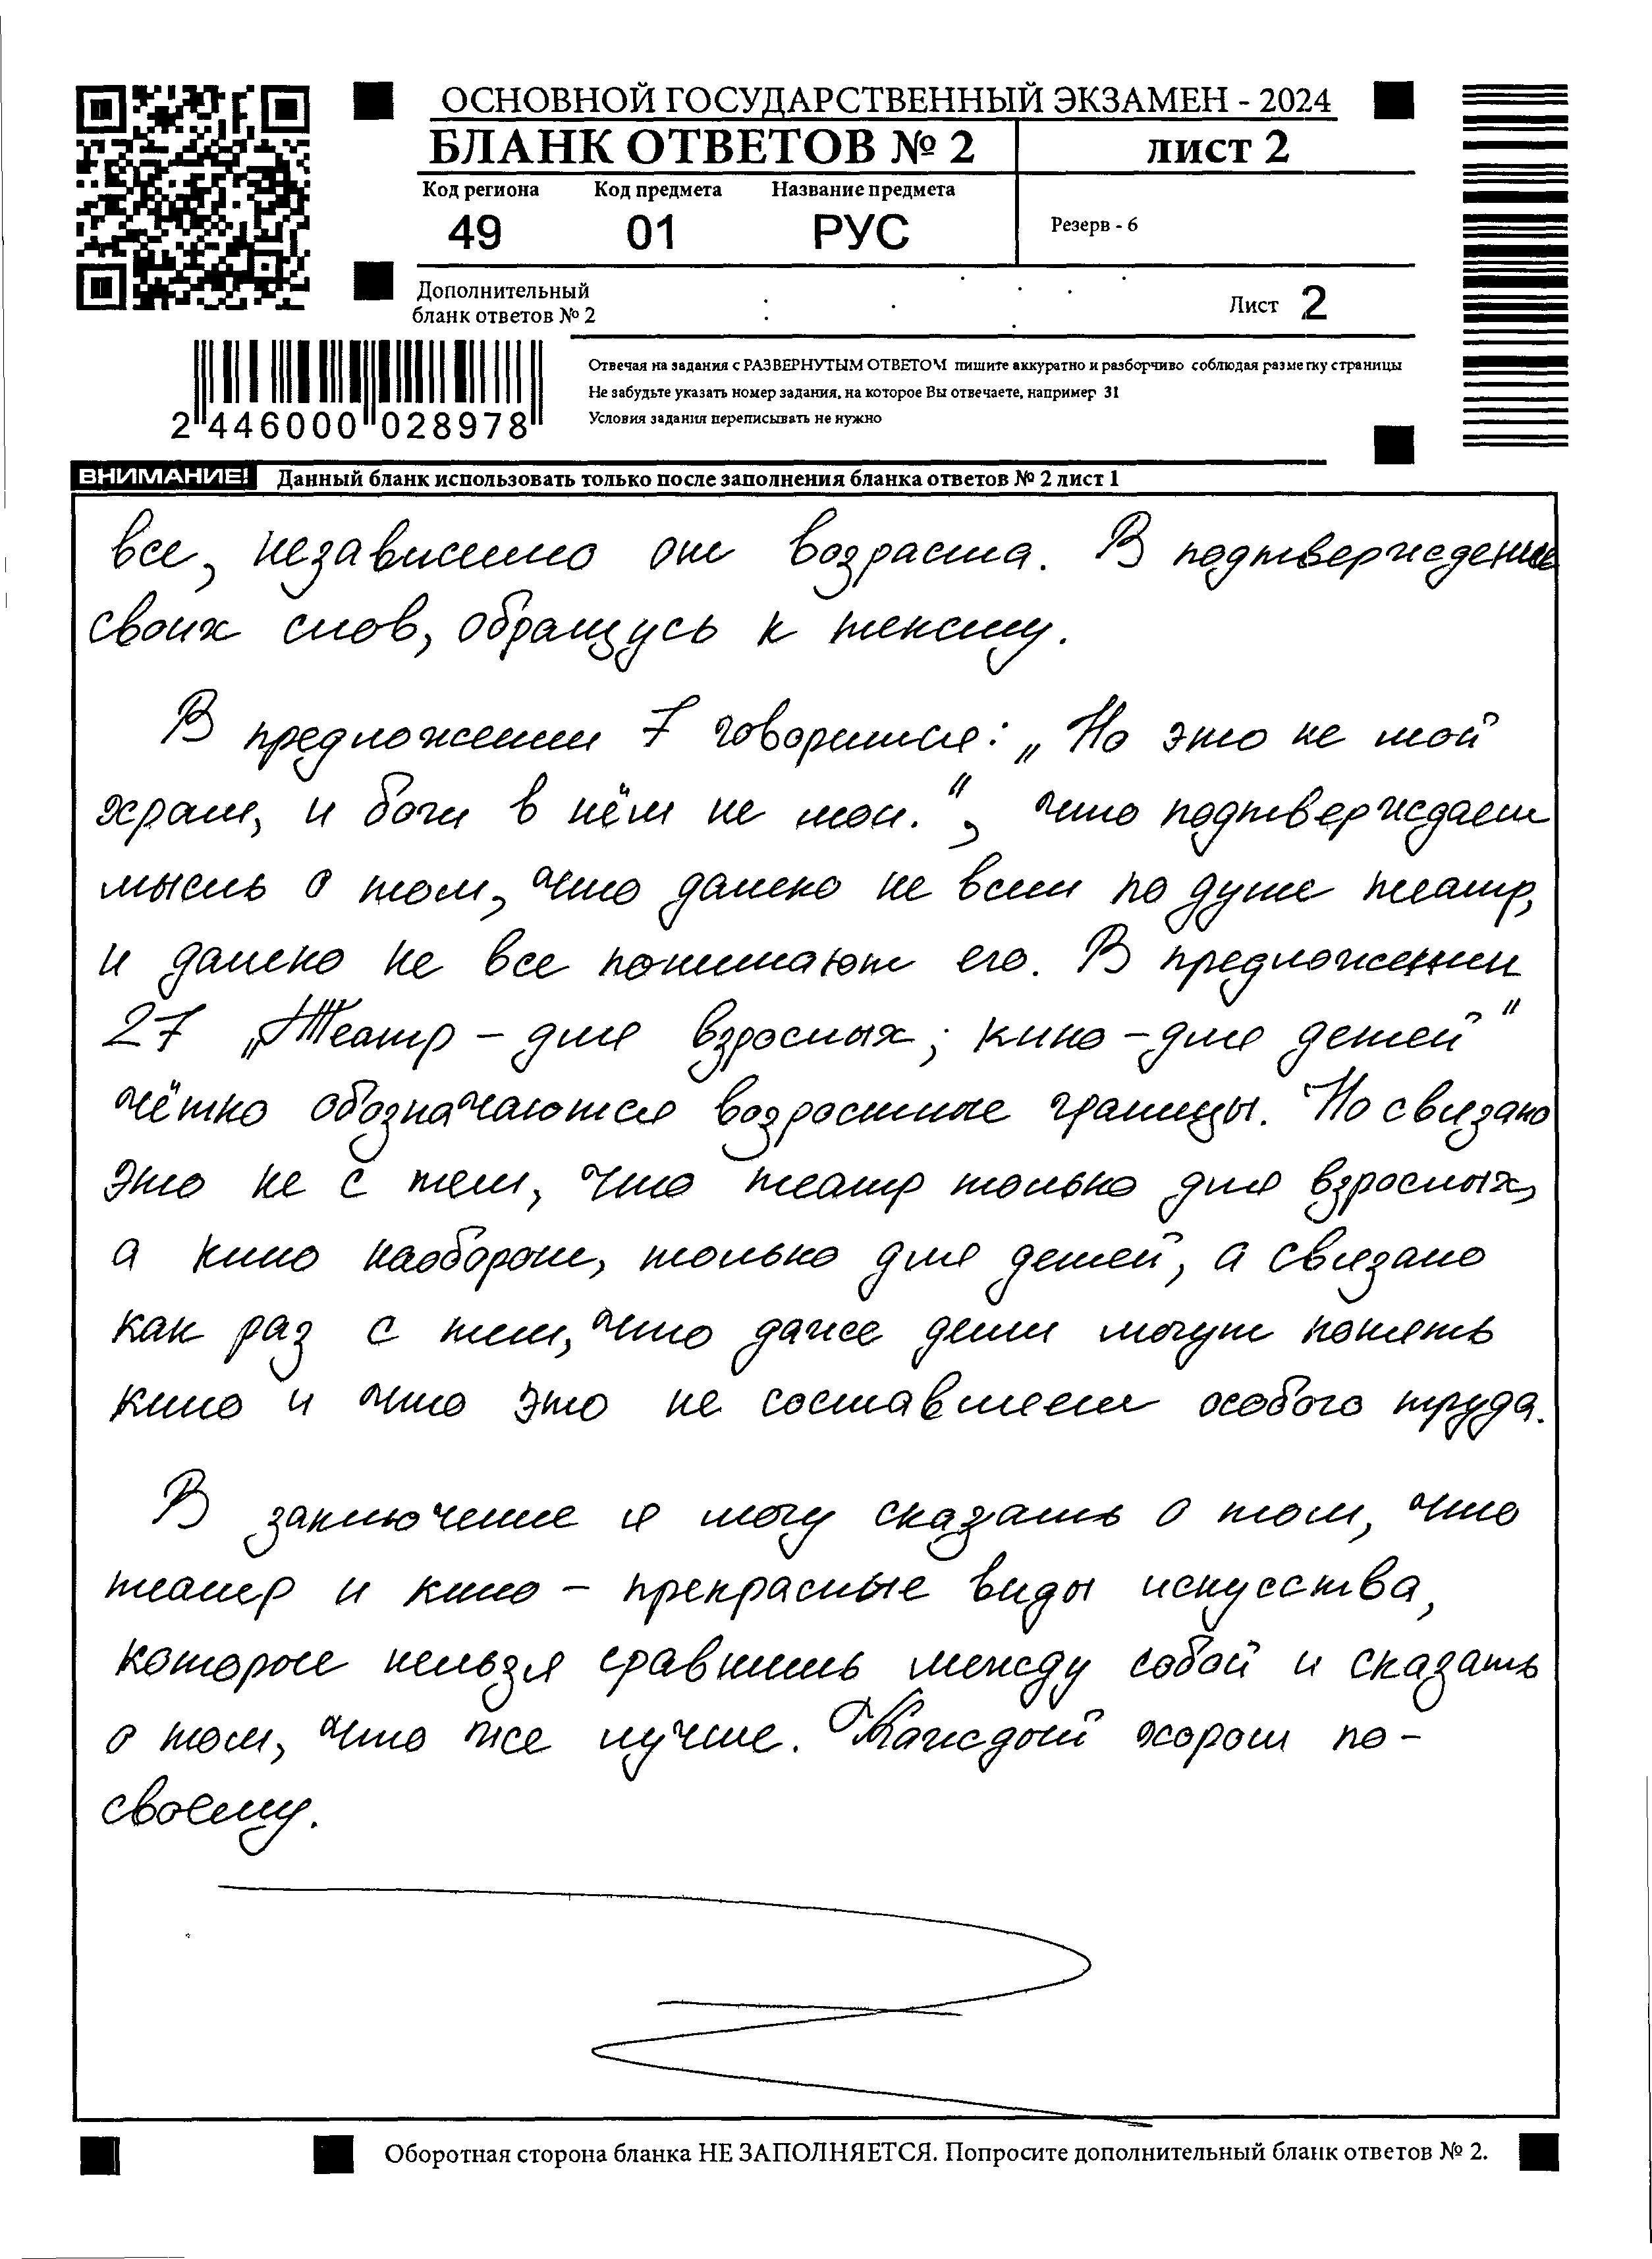 ОСНОВНОЙ ГОСУДАРСТВЕННЫЙ ЭКЗАМЕН - 2024
БЛАНК ОТВЕТОВ № 2
ЛИСТ 2
Код региона Код предмета Название предмета
49 01 РУС
Резерв - 6
Дополнительный
бланк ответов № 2
Лист 2
Отвечая на задания с РАЗВЕРНУТЫМ ОТВЕТОМ пишите аккуратно и разборчиво соблюдая разметку страницы
Не забудьте указать номер задания, на которое Вы отвечаете, например 31
Условия задания переписывать не нужно
2 446000 028978
ВНИМАНИЕ! Данный бланк использовать только после заполнения бланка ответов № 2 лист 1
все, независимо от возраста. В подтверждение
своих слов, обращусь к тексту.
В предложении 7 говорится: „Но это не мой
храм, и боги в нём не мои.“, что подтверждает
мысль о том, что далеко не всем по душе театр,
и далеко не все понимают его. В предложении
27 „Театр – для взрослых; кино – для детей“
чётко обозначаются возрастные границы. Но связано
это не с тем, что театр только для взрослых,
а кино наоборот, только для детей, а связано
как раз с тем, что даже дети могут понять
кино и что это не составляет особого труда.
В заключение я могу сказать о том, что
театр и кино – прекрасные виды искусства,
которые нельзя сравнить между собой и сказать
о том, что же лучше. Каждый хорош по-
своему.
Оборотная сторона бланка НЕ ЗАПОЛНЯЕТСЯ. Попросите дополнительный бланк ответов № 2.